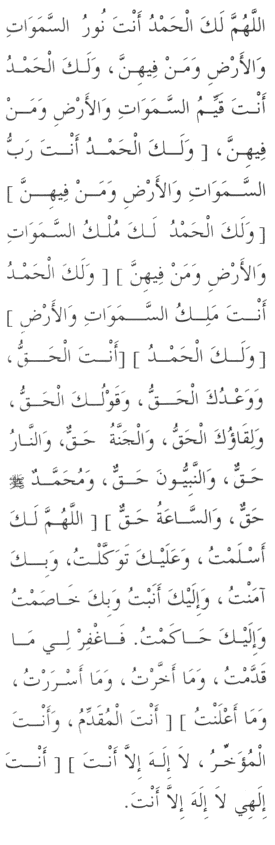 اللَّهُمَّ لَكَ الْحَمْدُ أَنْتَ نُورُ السَّمَوَاتِ
وَالأَرْضِ وَمَنْ فِيهِنَّ، وَلَكَ الْحَمْدُ
أَنْتَ قَيِّمُ السَّمَوَاتِ وَالأَرْضِ وَمَنْ
فِيهِنَّ، [ وَلَكَ الْحَمْدُ أَنْتَ رَبُّ
السَّمَوَاتِ وَالأَرْضِ وَمَنْ فِيهِنَّ ]
[ وَلَكَ الْحَمْدُ لَكَ مُلْكُ السَّمَوَاتِ
وَالأَرْضِ وَمَنْ فِيهِنَّ ] [ وَلَكَ الْحَمْدُ
أَنْتَ مَلِكُ السَّمَوَاتِ وَالأَرْضِ ]
[ وَلَكَ الْحَمْدُ ] [أَنْتَ الْحَقُّ،
وَوَعْدُكَ الْحَقُّ، وَقَوْلُكَ الْحَقُّ،
وَلِقَاؤُكَ الْحَقُّ، وَالْجَنَّةُ حَقٌّ، وَالنَّارُ
حَقٌّ، وَالنَّبِيُّونَ حَقٌّ، وَمُحَمَّدٌ ﷺ
حَقٌّ، وَالسَّاعَةُ حَقٌّ ] [ اللَّهُمَّ لَكَ
أَسْلَمْتُ، وَعَلَيْكَ تَوَكَّلْتُ، وَبِكَ
آمَنْتُ، وَإِلَيْكَ أَنَبْتُ وَبِكَ خَاصَمْتُ
وَإِلَيْكَ حَاكَمْتُ. فَاغْفِرْ لِي مَا
قَدَّمْتُ، وَمَا أَخَّرْتُ، وَمَا أَسْرَرْتُ،
وَمَا أَعْلَنْتُ ] [ أَنْتَ الْمُقَدِّمُ، وَأَنْتَ
الْمُؤَخِّرُ، لاَ إِلَهَ إِلاَّ أَنْتَ ] [ أَنْتَ
إِلَهِي لاَ إِلَهَ إِلاَّ أَنْتَ.